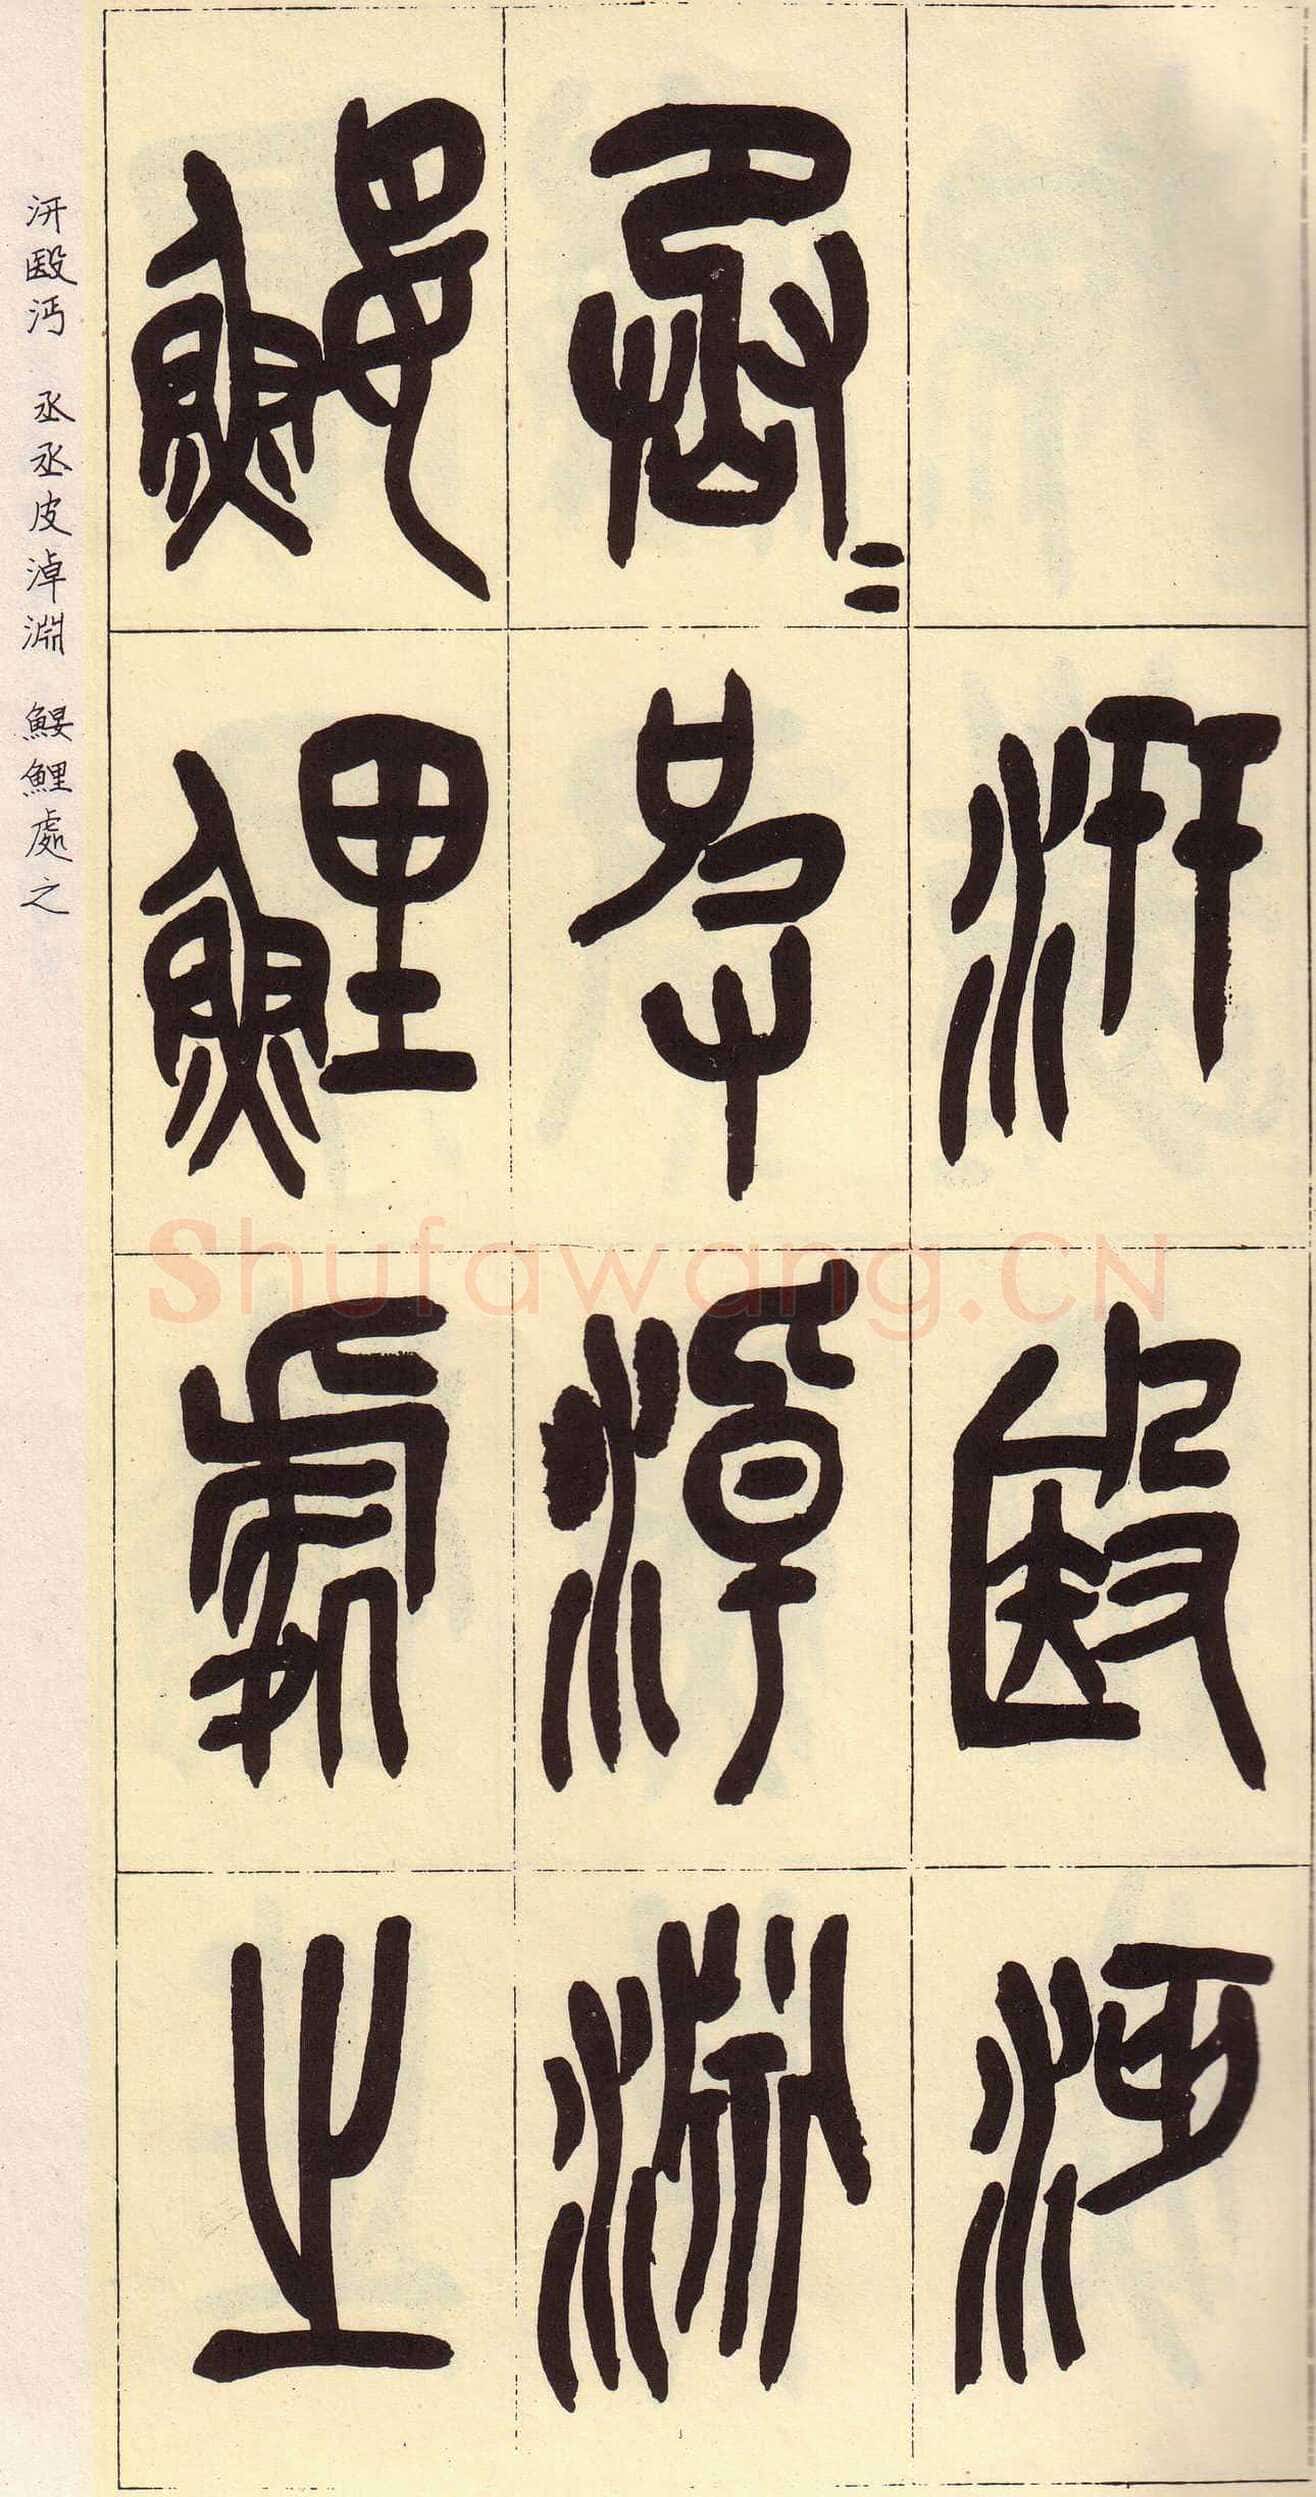 汧殹沔
丞=皮淖淵
鰋鯉處之
汧殹沔　丞丞皮淖淵　鰋鯉處之
Shufawang.CN